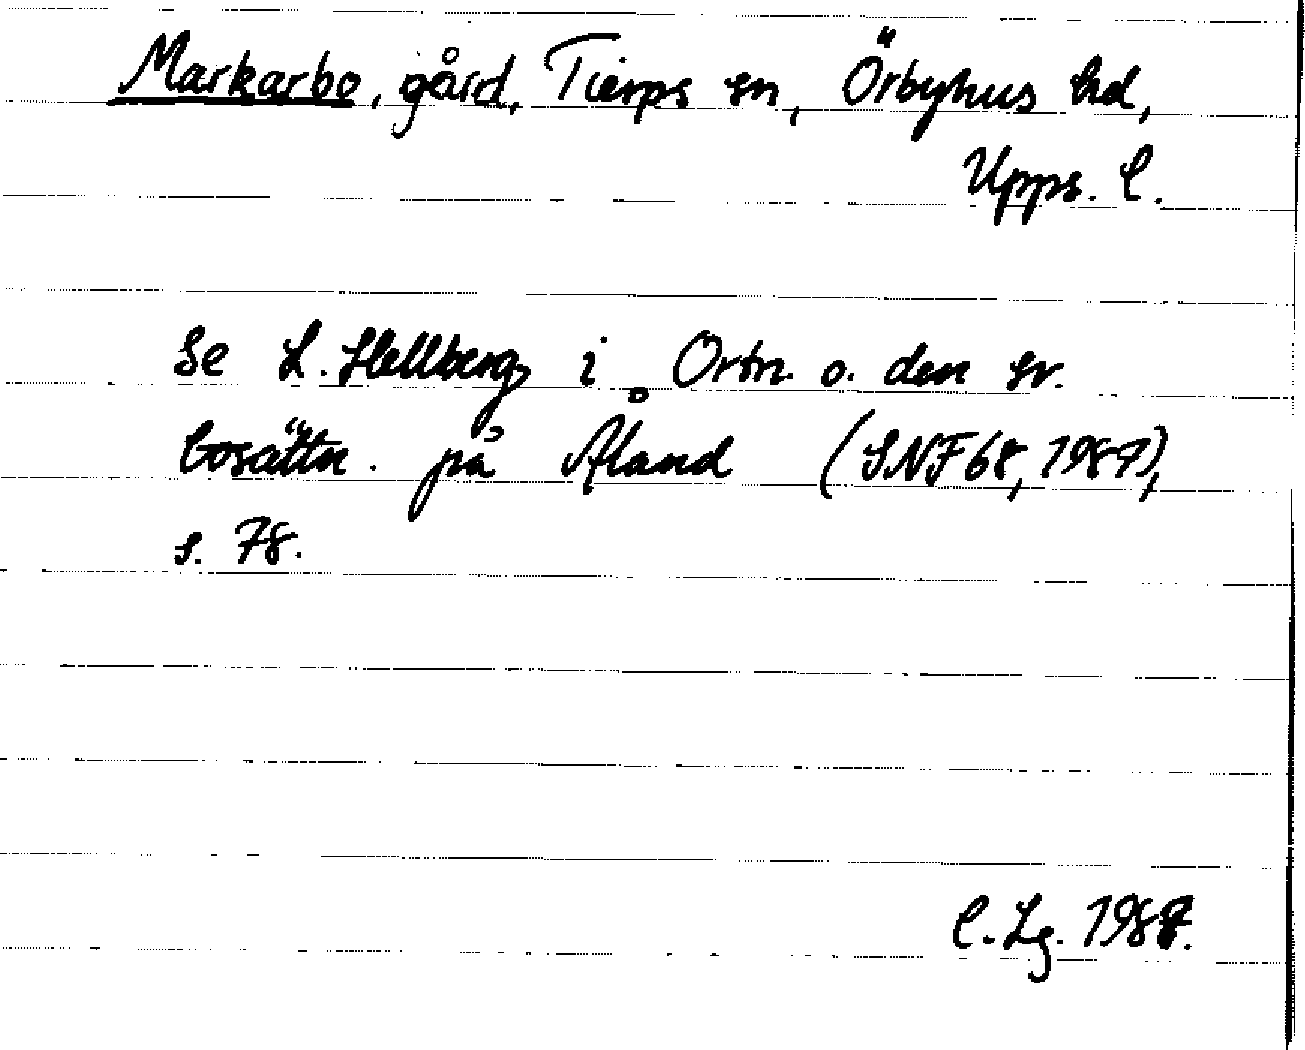 Markarbo, gård, Tierps sn, Örbyhus hd,
Upps. l.
Se L. Hellberg i Ortn. o. den sv.
bosättn. på Åland (SNF 68, 1987),
s. 78.
C. Lg. 1988.